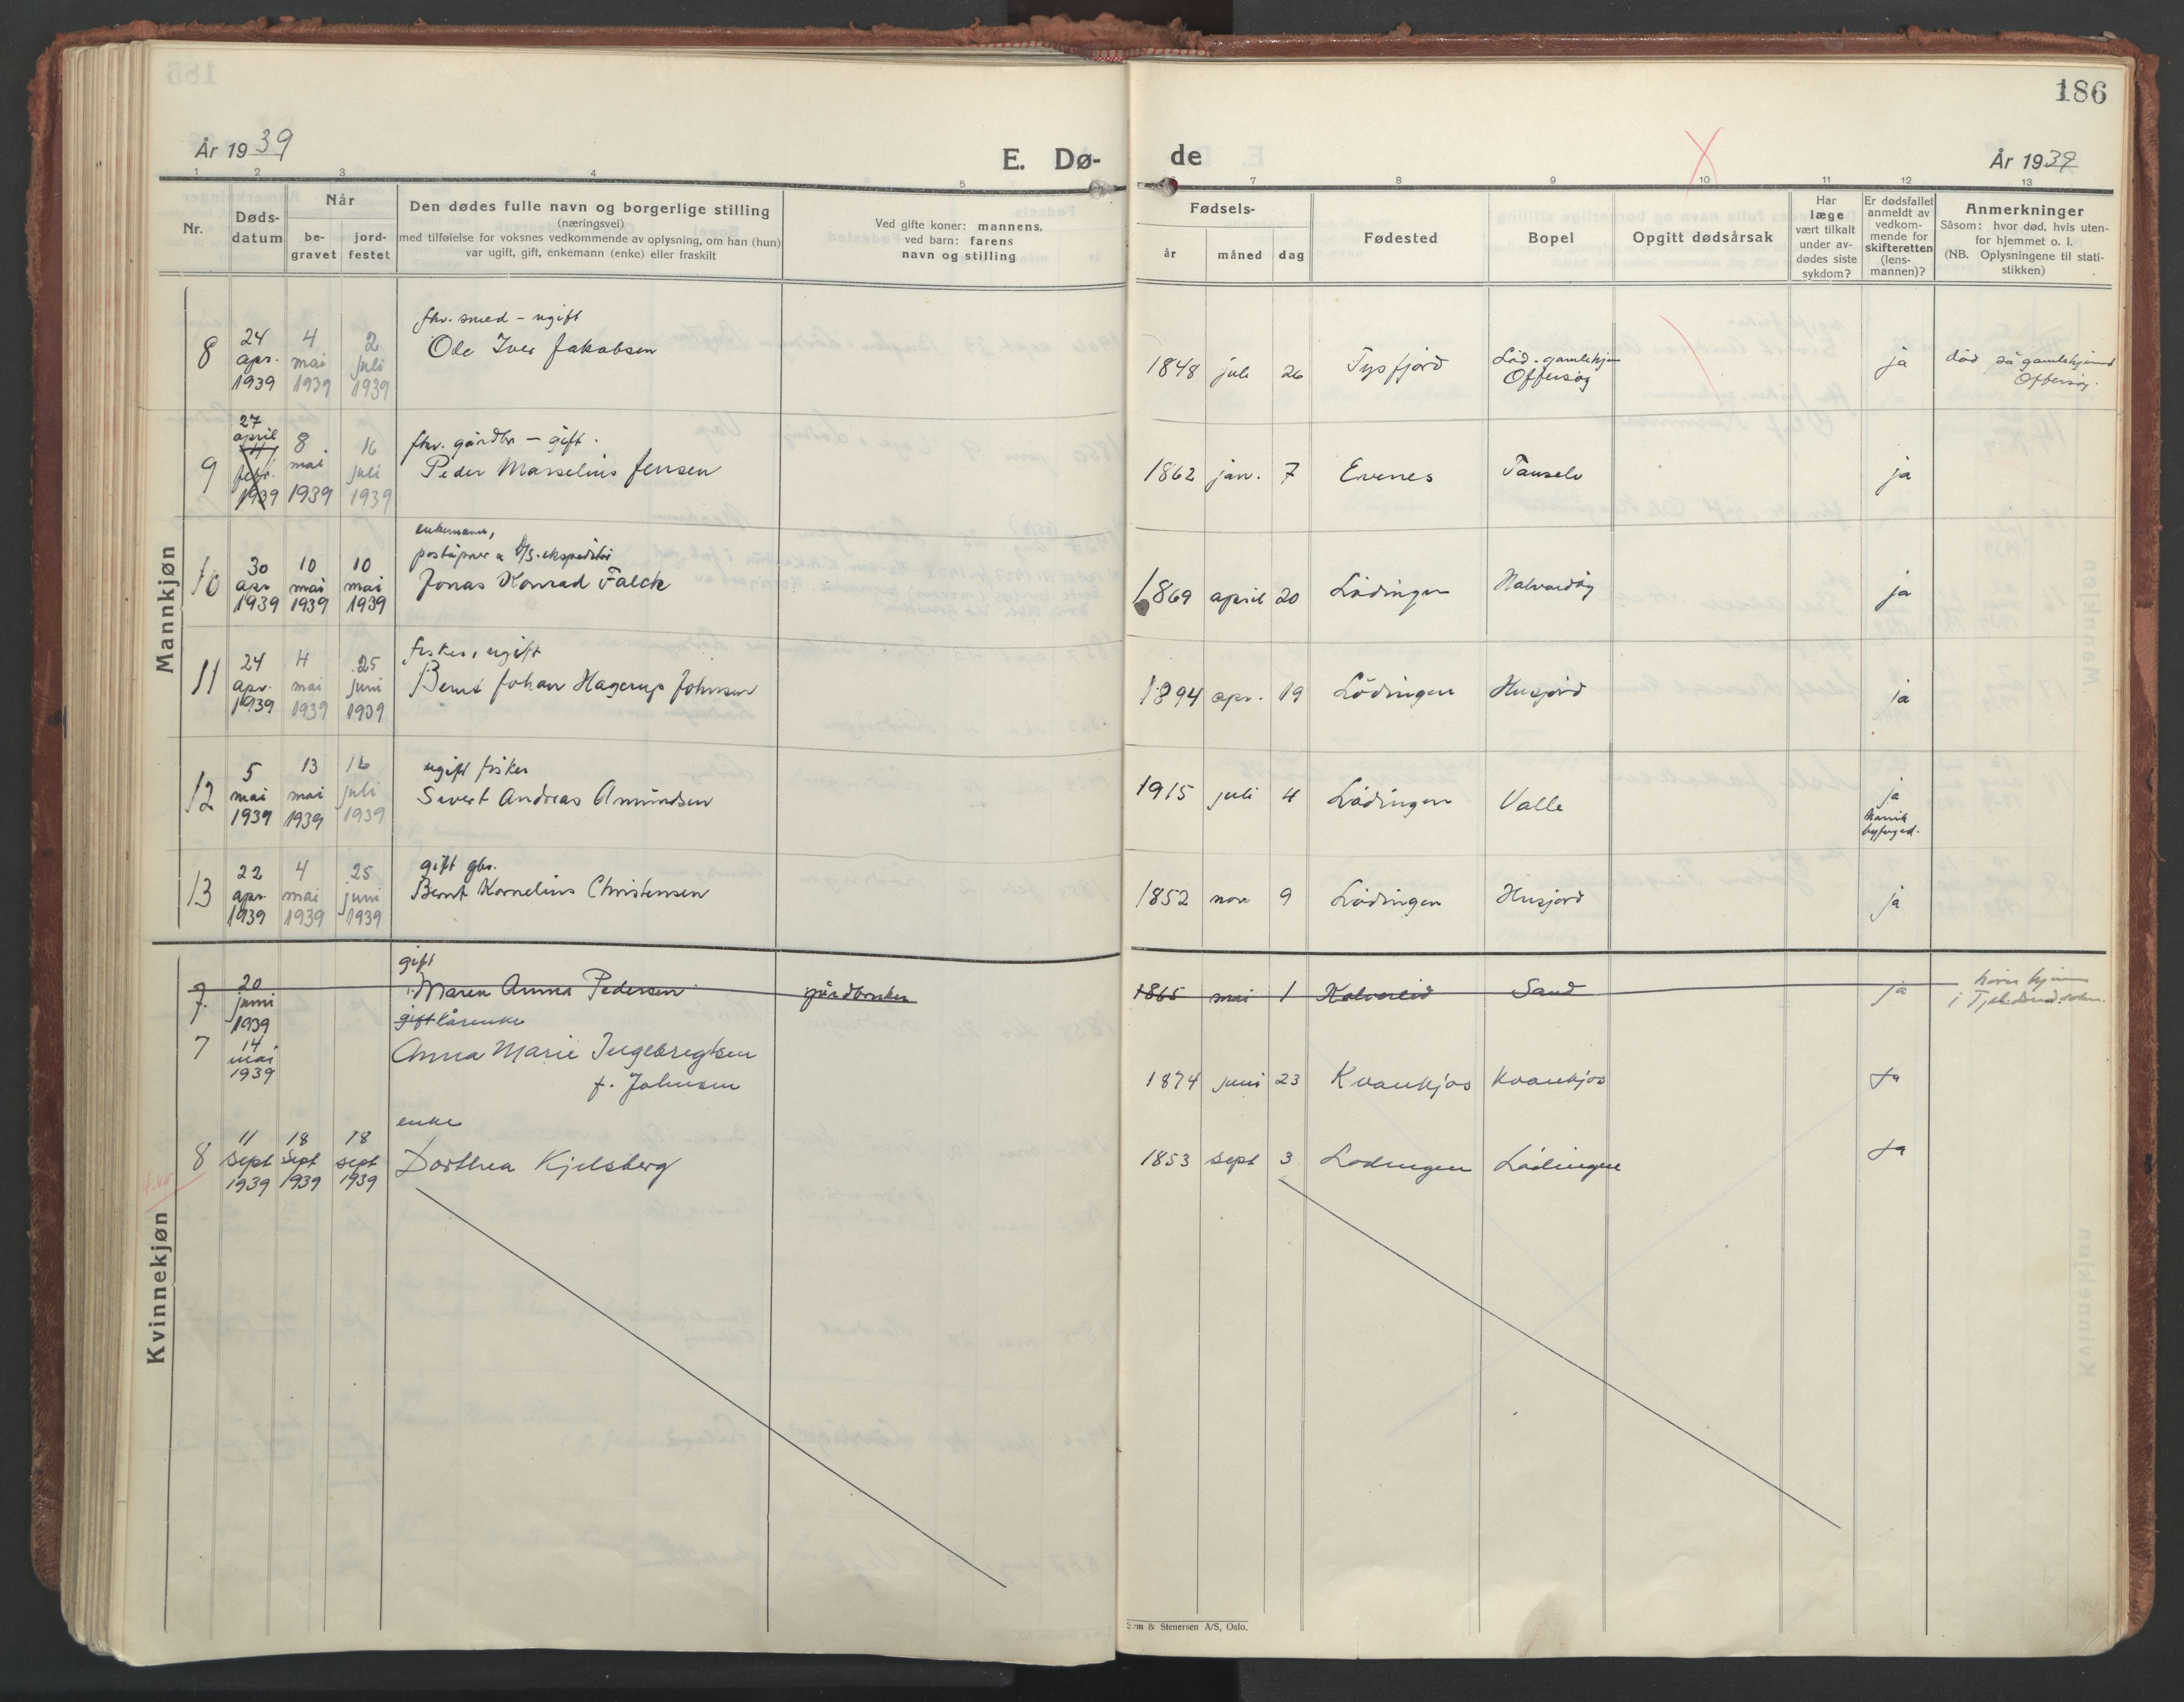 186
År 1939
E. Dø-
de
År 1939
1 2 3 4 5 7 8 9 10 11 12 13
Nr.
Døds-
datum
Når
be-
gravet
jord-
festet
Den dødes fulle navn og borgerlige stilling
(næringsvei)
med tilføielse for voksnes vedkommende av oplysning, om han (hun)
var ugift, gift, enkemann (enke) eller fraskilt
Ved gifte koner: mannens,
ved barn: farens
navn og stilling
Fødsels-
år måned dag
Fødested
Bopel
Opgitt dødsårsak
Har
læge
vært tilkalt
under av-
dødes siste
sykdom?
Er dødsfallet
anmeldt av
vedkom-
mende for
skifteretten
(lens-
mannen)?
Anmerkninger
Såsom: hvor død, hvis uten-
for hjemmet o. l.
(NB. Oplysningene til stati-
stikken)
Mannkjøn
8
24
apr.
1939
4
mai
1939
2
juli
1939
fhv. smed - ugift
Ole Iver Jakobsen
1848 juli 26 Tysfjord
Löd. gamlehjem
Offersöy
ja
död på gamlehjemmet
Offersöy.
9
27
april
febr.
1939
8
mai
1939
16
juli
1939
fhv. gårdbr - gift.
Peder Marselius Jensen
1862 jan. 7 Evenes ja
10
30
apr
1939
10
mai
1939
10
mai
1939
enkemann,
poståpner & D/S. ekspeditör
Jonas Konrad Falck
1869 april 20 Lödingen Halvardöy ja
11
24
apr.
1939
4
mai
1939
25
juni
1939
fisker, ugift
Bernt Johan Hagerup Johnsen
1894 apr. 19 Lödingen Husjord ja
12
5
mai
1939
13
mai
1939
16
juli
1939
ugift fisker
Sivert Andreas Amundsen
1915 juli 4 Lödingen Valle ja
13
22
apr.
1939
4
mai
1939
25
juni
1939
gift gbr.
Bernt Kornelius Christensen
1852 nov 9 Lödingen Husjord ja
Kvinnekjøn
7.
20
juni
1939
gift
Maren Anna Pedersen
gårdbruker
1865 mai 1 Sand ja
hörer hjem
i Tjeldsund
7
14
mai
1939
gift kårenke
Anna Marie Ingebregtsen
f. Johnsen
1874 juni 23 Kvannkjos Kvannkjos Ja
8
11
sept
1939
18
sept
1939
18
sept
1939
enke
Dorthea Kjelsberg
1853 sept 3 Lödingen Lödingen Ja
& Stenersen A/S, Oslo.